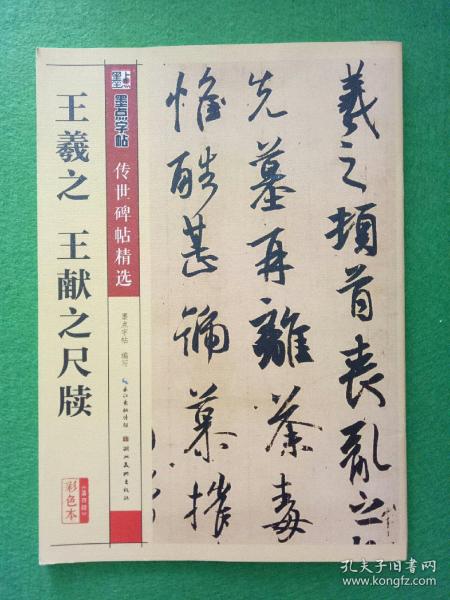 王羲之 王献之尺牍
墨点字帖
传世碑帖精选
墨点字帖 编写
长江出版传媒
湖北美术出版社
彩色本
羲之顿首丧乱之
先墓再離荼毒
惟酷甚號慕摧
孔夫子旧书网
www.kongfz.com